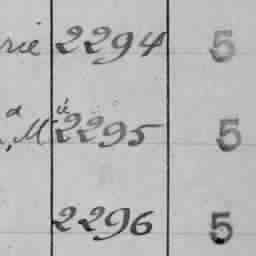 rie 2294 5
2295 5
2296 5